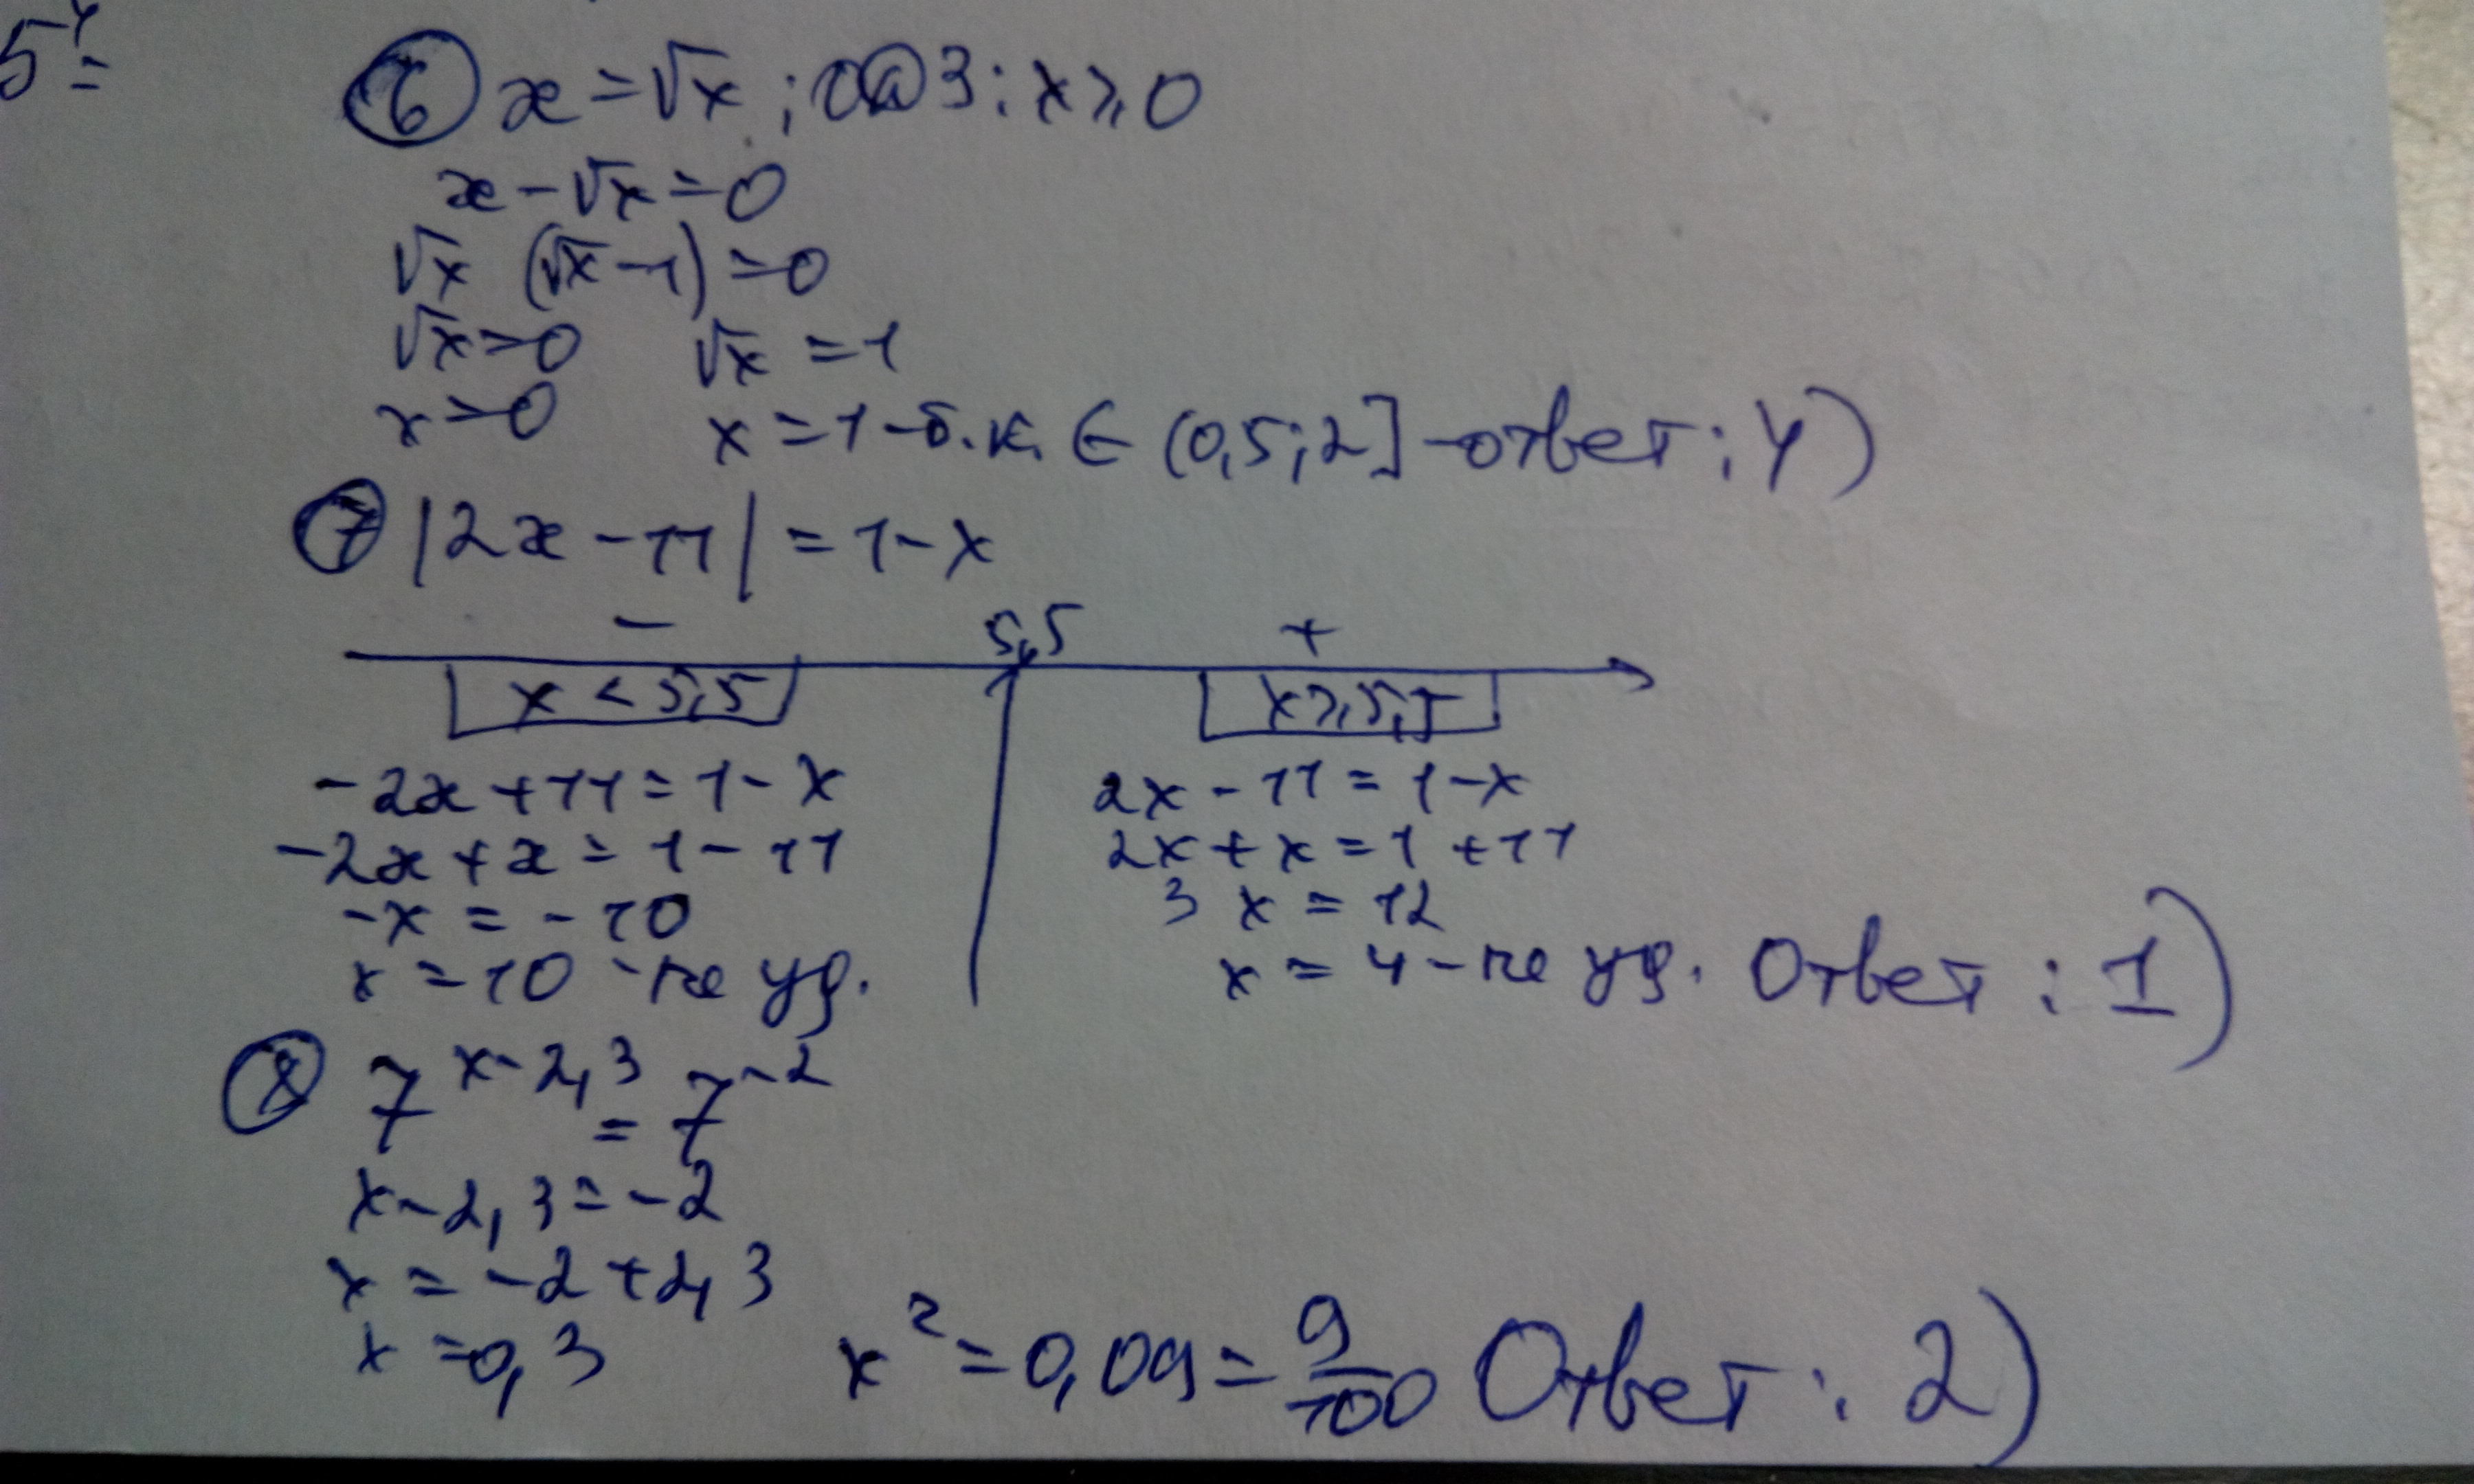 5⁻⁴=
⑥ x = √x ; ОДЗ: x ≥ 0
x - √x = 0
√x (√x - 1) = 0
√x = 0 √x = 1
x = 0 x = 1 - б.к. ∈ (0,5; 2] - ответ: 4)
⑦ |2x - 11| = 1 - x
- 5,5 +
x < 5,5 x ≥ 5,5
-2x + 11 = 1 - x 2x - 11 = 1 - x
-2x + x = 1 - 11 2x + x = 1 + 11
-x = -10 3x = 12
x = 10 - не уд. x = 4 - не уд. Ответ: 1)
⑧ 7^(x-2,3) = 7^(-2)
x - 2,3 = -2
x = -2 + 2,3
x = 0,3 x² = 0,09 = 9/100 Ответ: 2)